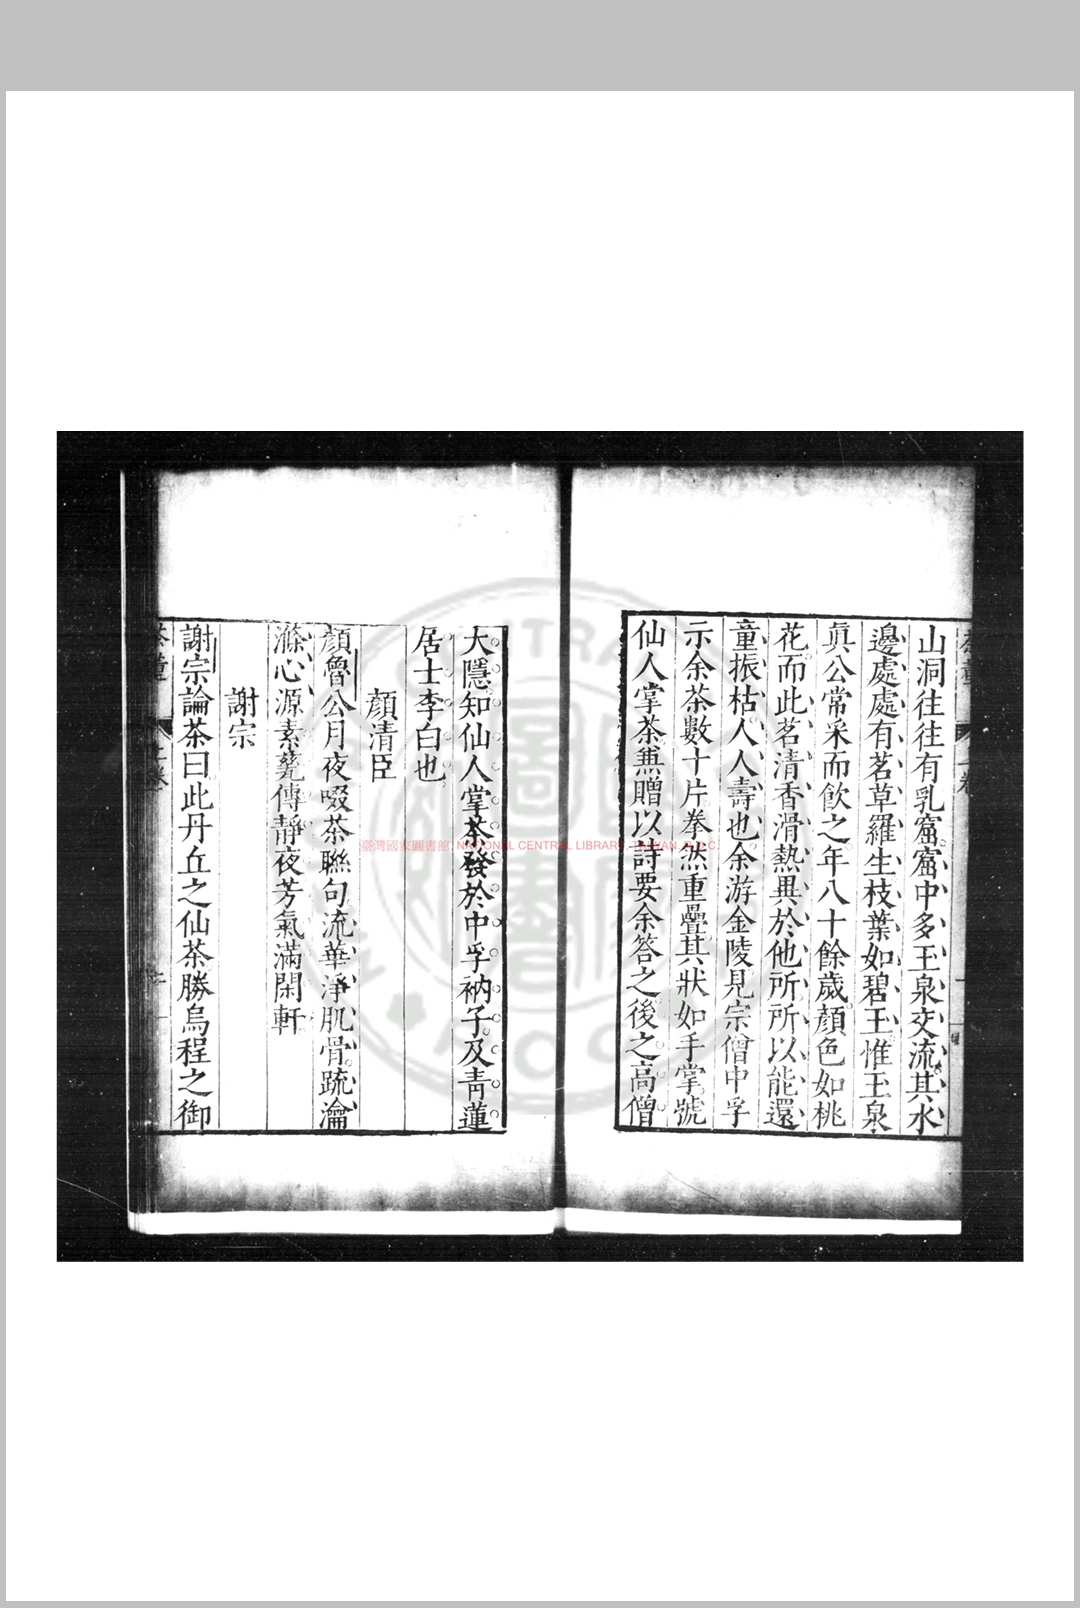 山洞往往有乳窟窟中多玉泉交流其水
邊處處有茗草羅生枝葉如碧玉惟玉泉
眞公常采而飲之年八十餘歲顏色如桃
花而此茗清香滑熱異於他所所以能還
童振枯人人壽也余游金陵見宗僧中孚
示余茶數十片拳然重疊其狀如手掌號
仙人掌茶兼贈以詩要余答之後之高僧
大隱知仙人掌茶發於中孚衲子及靑蓮
居士李白也
顏清臣
顏魯公月夜啜茶聯句流華淨肌骨疏瀹
滌心源素甆傳靜夜芳氣滿閑軒
謝宗
謝宗論茶曰此丹丘之仙茶勝烏程之御
臺灣國家圖書館, NATIONAL CENTRAL LIBRARY, TAIWAN, R.O.C.